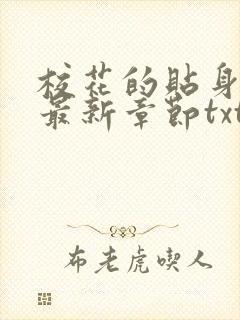 校花的貼身
最新章節txt
布老虎喫人